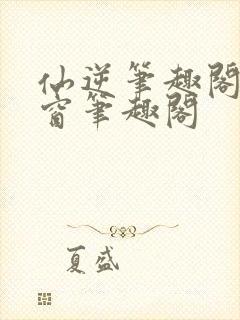 仙逆筆趣閣
窗筆趣閣
夏盛